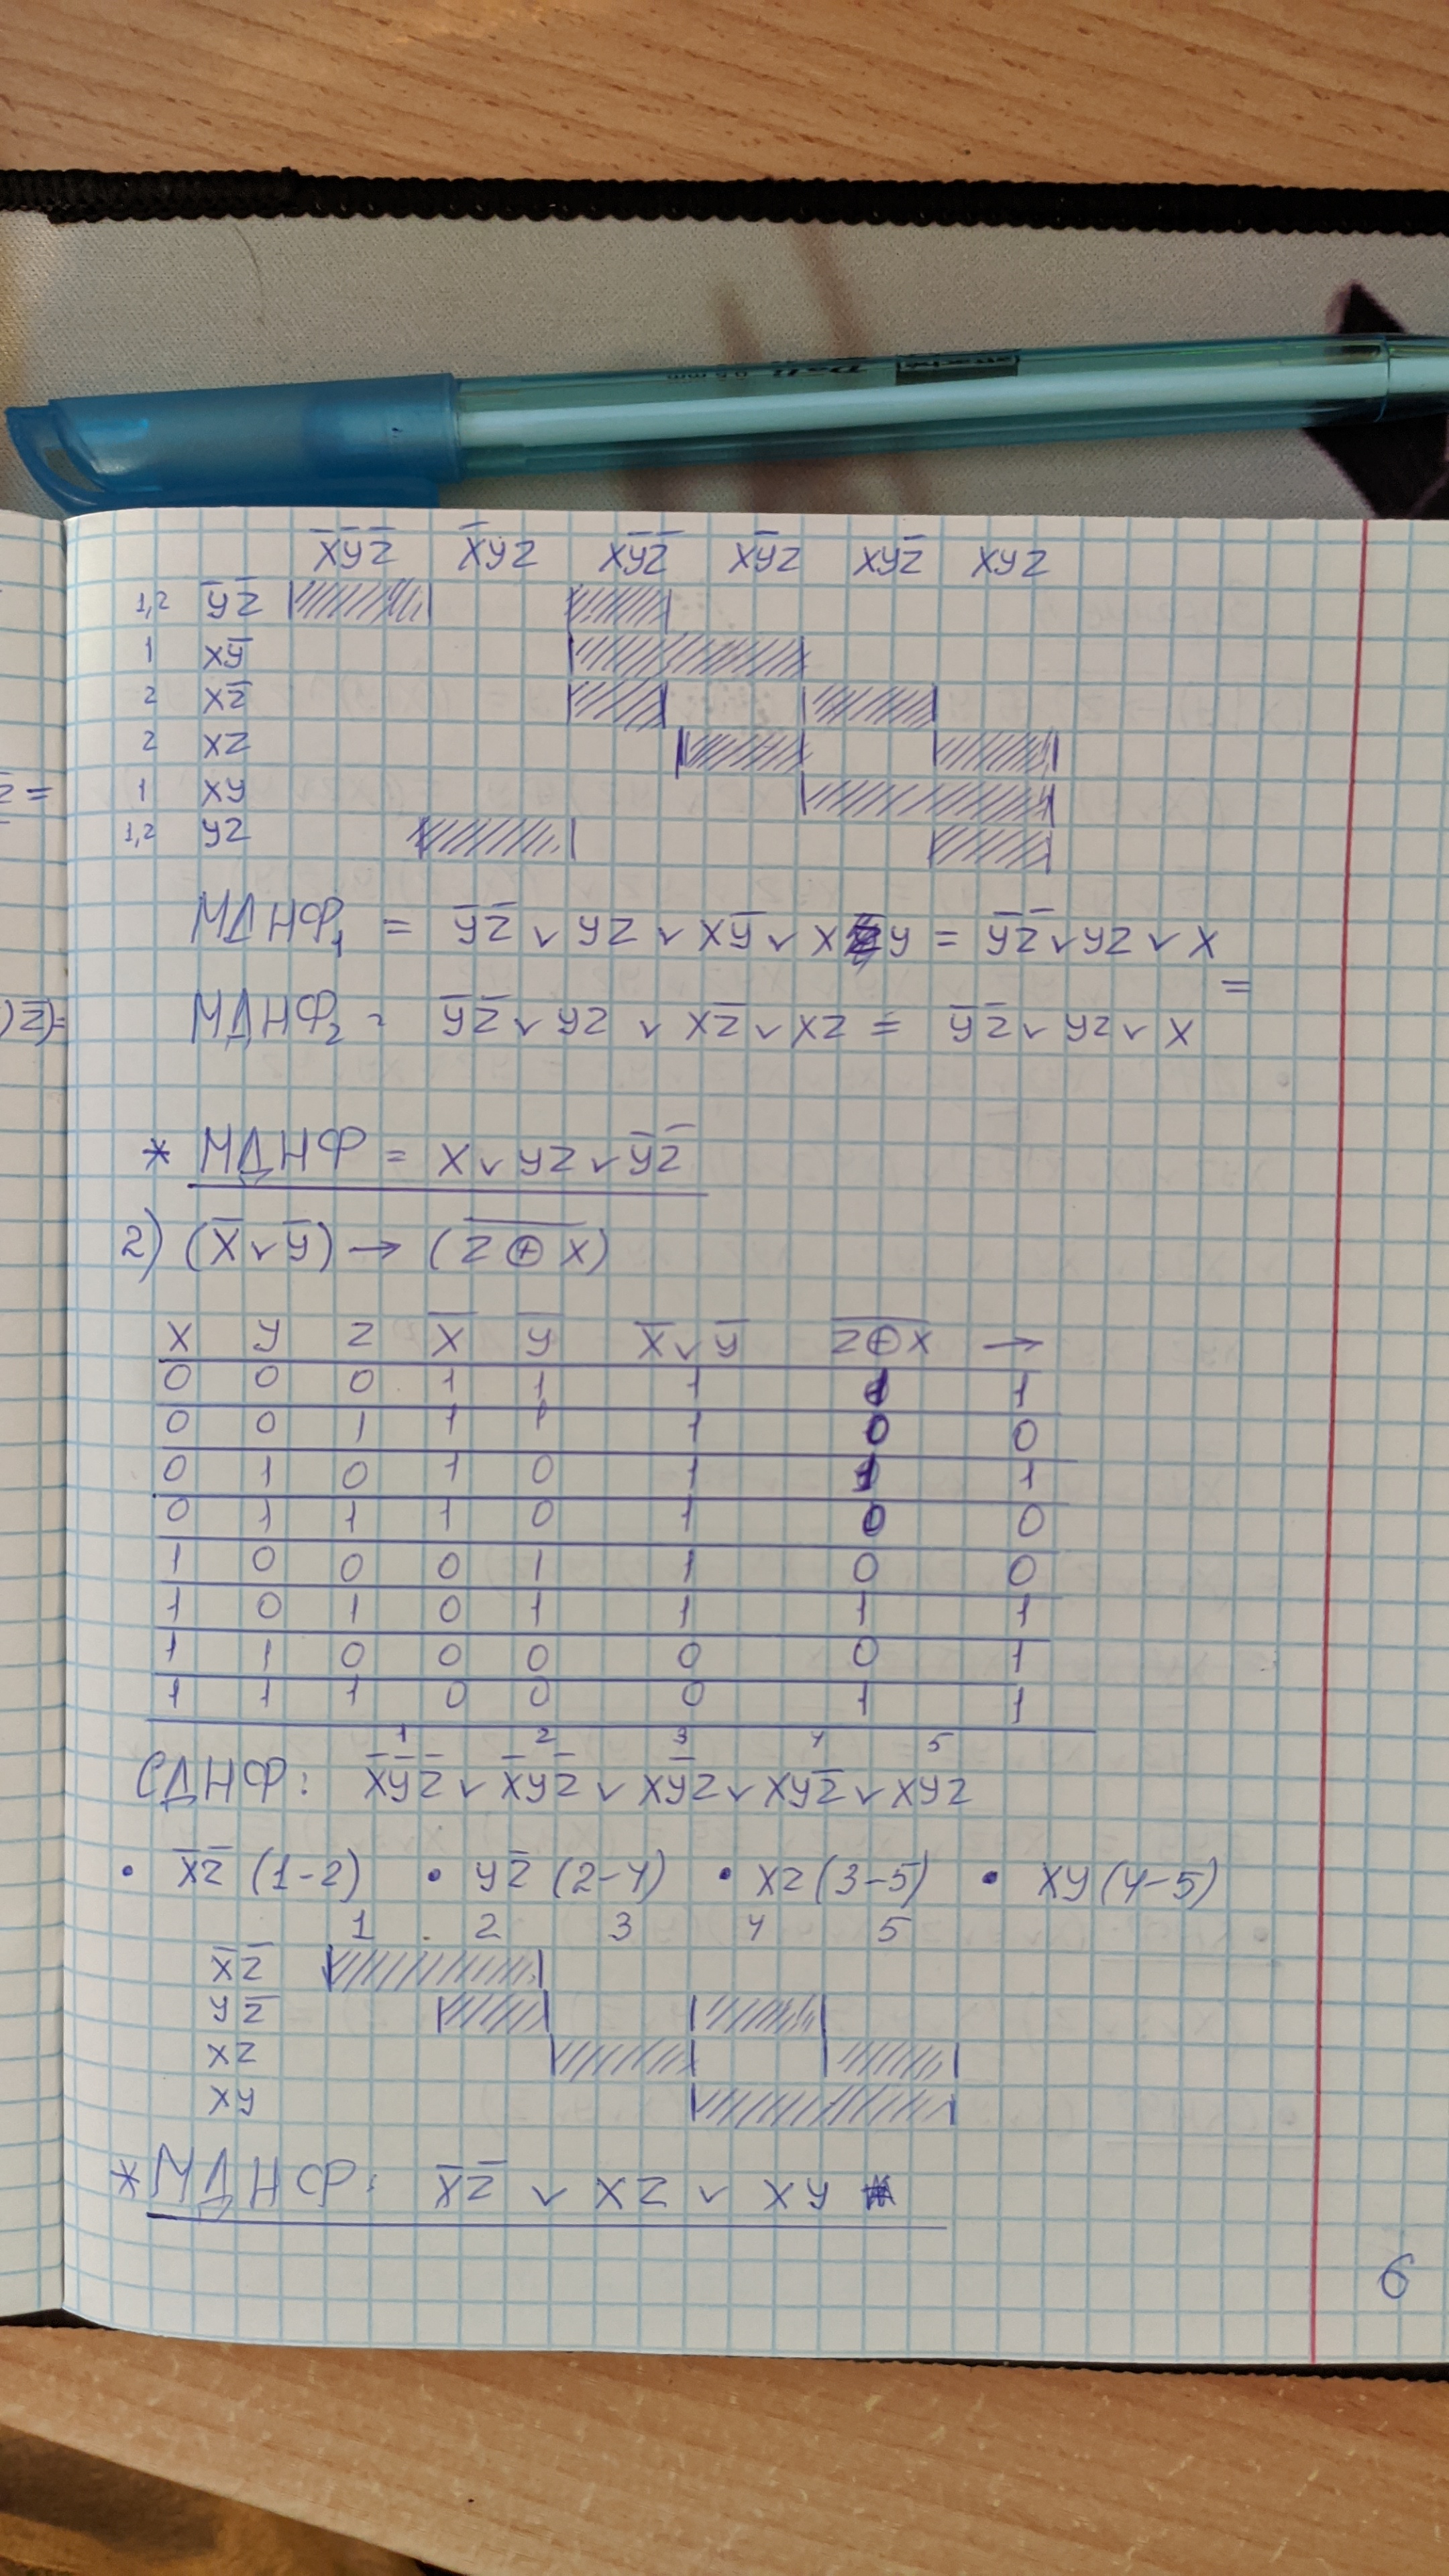 x̅y̅z̅ x̅yz xy̅z̅ xy̅z xyz̅ xyz
1,2 y̅z̅
1 xy̅
2 xz̅
2 xz
z = 1 xy
1,2 yz
МДНФ₁ = y̅z̅ ∨ yz ∨ xy̅ ∨ xy = y̅z̅ ∨ yz ∨ x =
)z̅)= МДНФ₂ = y̅z̅ ∨ yz ∨ xz̅ ∨ xz = y̅z̅ ∨ yz ∨ x
* МДНФ = x ∨ yz ∨ y̅z̅
2) (x̅ ∨ y̅) → (z̅ ̅⊕̅ ̅x̅)
x y z x̅ y̅ x̅ ∨ y̅ z̅ ̅⊕̅ ̅x̅ →
0 0 0 1 1 1 1 1
0 0 1 1 1 1 0 0
0 1 0 1 0 1 1 1
0 1 1 1 0 1 0 0
1 0 0 0 1 1 0 0
1 0 1 0 1 1 1 1
1 1 0 0 0 0 0 1
1 1 1 0 0 0 1 1
1 2 3 4 5
СДНФ: x̅y̅z̅ ∨ x̅yz̅ ∨ xy̅z ∨ xyz̅ ∨ xyz
• x̅z̅ (1-2) • yz̅ (2-4) • xz (3-5) • xy (4-5)
1 2 3 4 5
x̅z̅
yz̅
xz
xy
* МДНФ: x̅z̅ ∨ xz ∨ xy
6